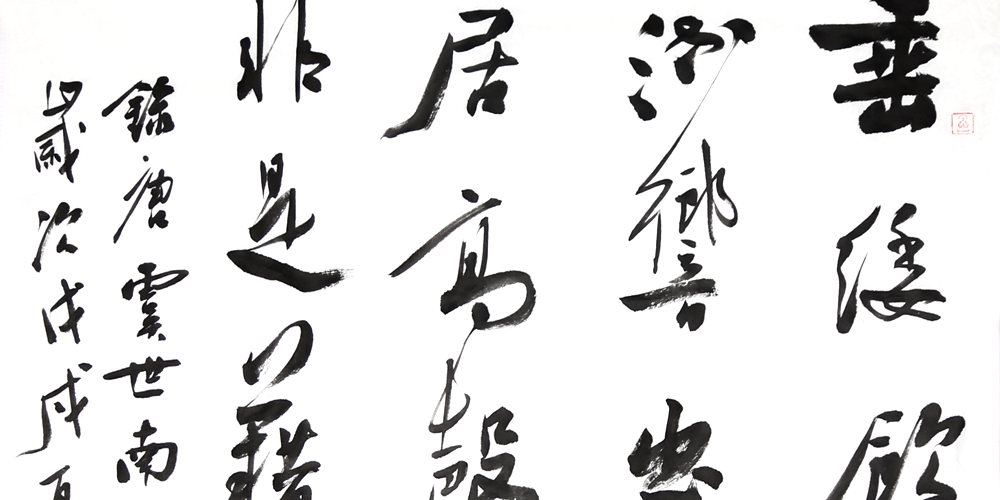 垂緌飲
流響出
居高聲
非是藉
錄唐虞世南
歲次戊戌夏